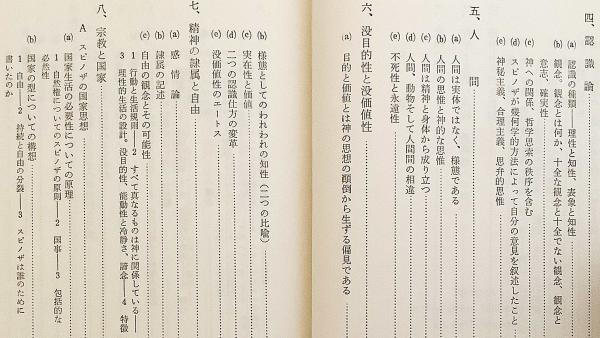 四、認識論
(a) 認識の種類――理性と知性、表象と知性
(b) 観念。観念とは何か、十全な観念と十全でない観念、観念と
意志、確実性
(c) 神への関係、哲学思索の秩序を含む
(d) スピノザが幾何学的方法によって自分の意見を叙述したこと
(e) 神秘主義、合理主義、思弁的思惟
五、人間
(a) 人間は実体ではなく、様態である
(b) 人間の思惟と神的な思惟
(c) 人間は精神と身体から成り立つ
(d) 人間、動物そして人間間の相違
(e) 不死性と永遠性
六、没目的性と没価値性
(a) 目的と価値とは神の思想の顚倒から生ずる偏見である
(b) 様態としてのわれわれの知性(二つの比喩)
(c) 実在性と価値
(d) 二つの認識仕方の変革
(e) 没価値性のエートス
七、精神の隷属と自由
(a) 感情論
(b) 隷属の記述
(c) 自由の観念とその可能性
1 行動と生活規則――2 すべて真なるものは神に関係している――
3 理性的生活の設計。没目的性、能動性と冷静さ、諦念――4 特徴
八、宗教と国家
A スピノザの国家思想
(a) 国家生活の必要性についての原理
1 自然権についてのスピノザの原則――2 国事――3 包括的な
必然性
(b) 国家の型についての構想
1 自由――2 持続と自由の分裂――3 スピノザは誰のために
書いたのか